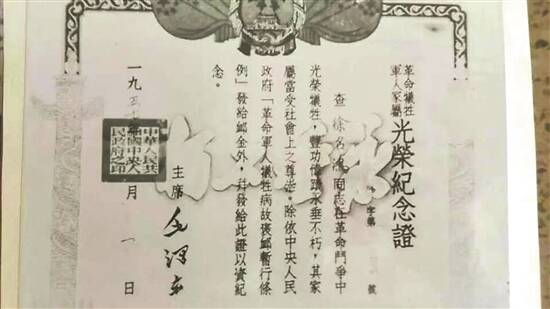 革命犧牲
軍人家屬
光榮紀念證
字第 號
查徐名鴻同志在革命鬥爭中
光榮犧牲，豐功偉蹟永垂不朽，其家
屬當受社會上之尊崇。除依中央人民
政府「革命軍人犧牲病故褒卹暫行條
例」發給卹金外，并發給此證以資紀
念。
主席 毛澤東
中華人民共
和國中央人
民政府之印
一九五 年 月一日